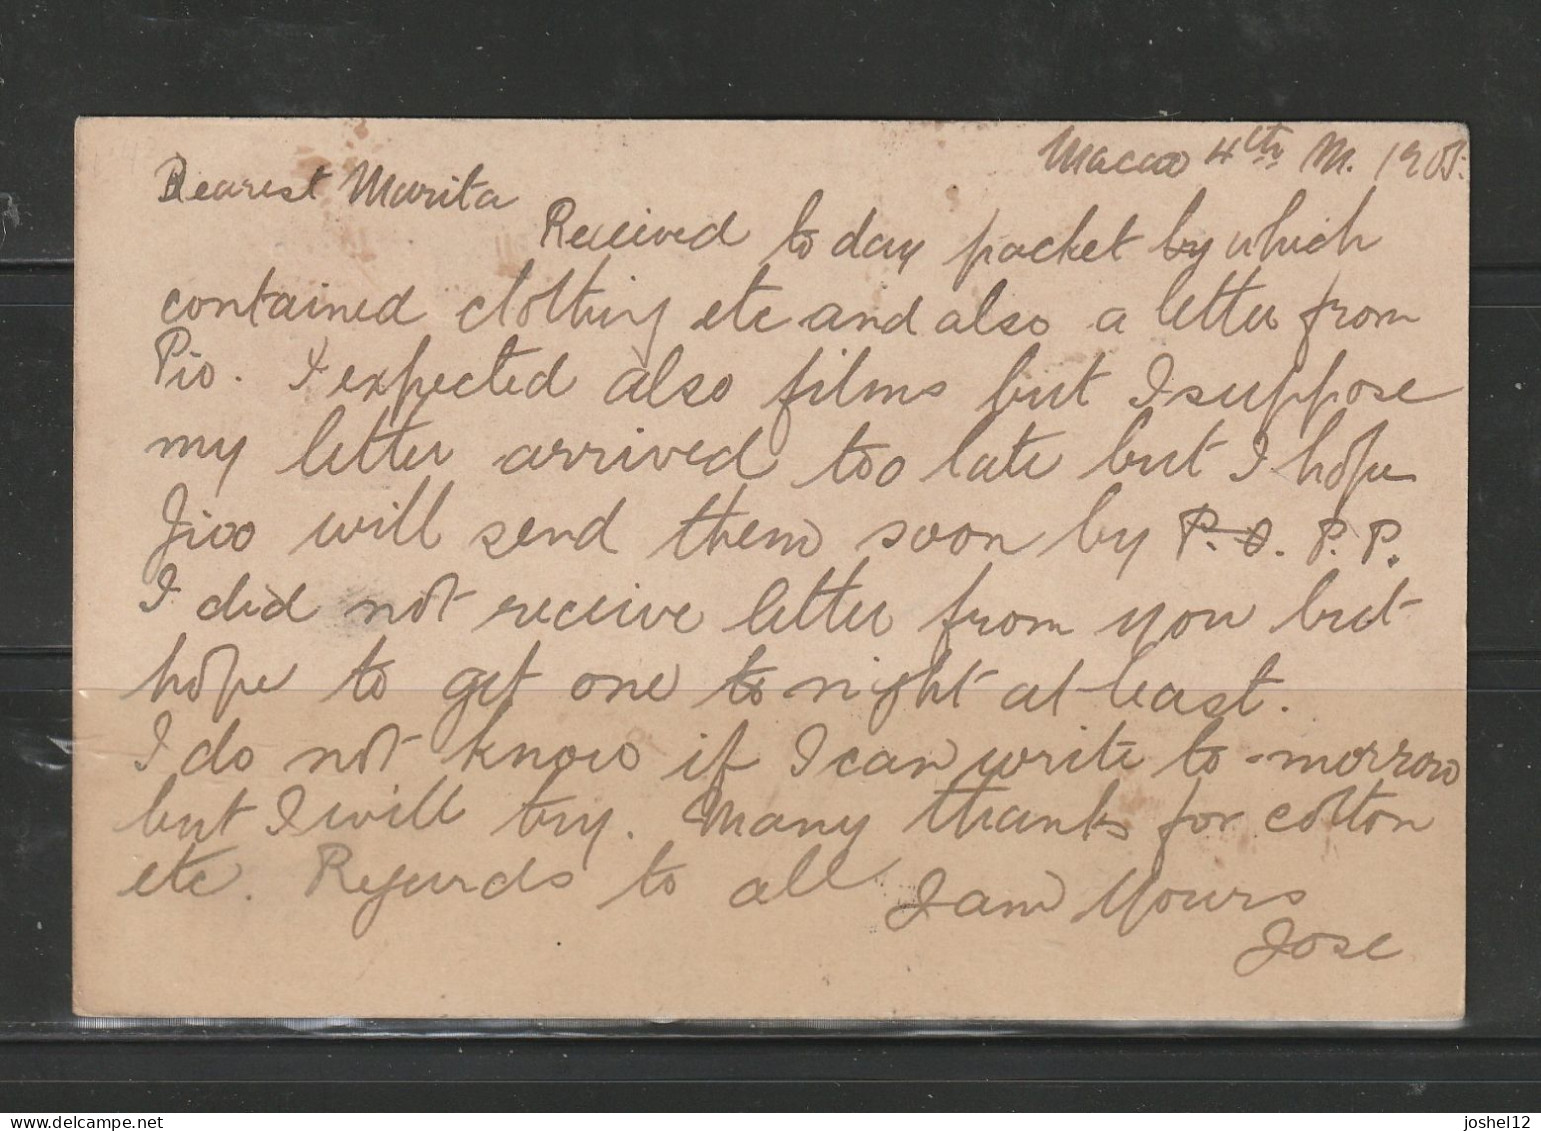 Macao 4th M. 1905.
Dearest Marita
Received to day packet by which
contained clothing etc and also a letter from
Pio. I expected also films but I suppose
my letter arrived too late but I hope
will send them soon by P.P.
I did not receive letter from you but
hope to get one to night at least.
I do not know if I can write to-morrow
but I will try. Many thanks for cotton
etc. Regards to all I am Yours
Jose
joshel12
www.delcampe.net